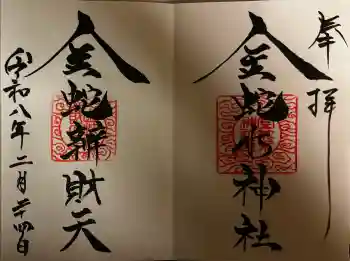 奉拝
金蛇水神社
金蛇辨財天
令和八年二月二十四日